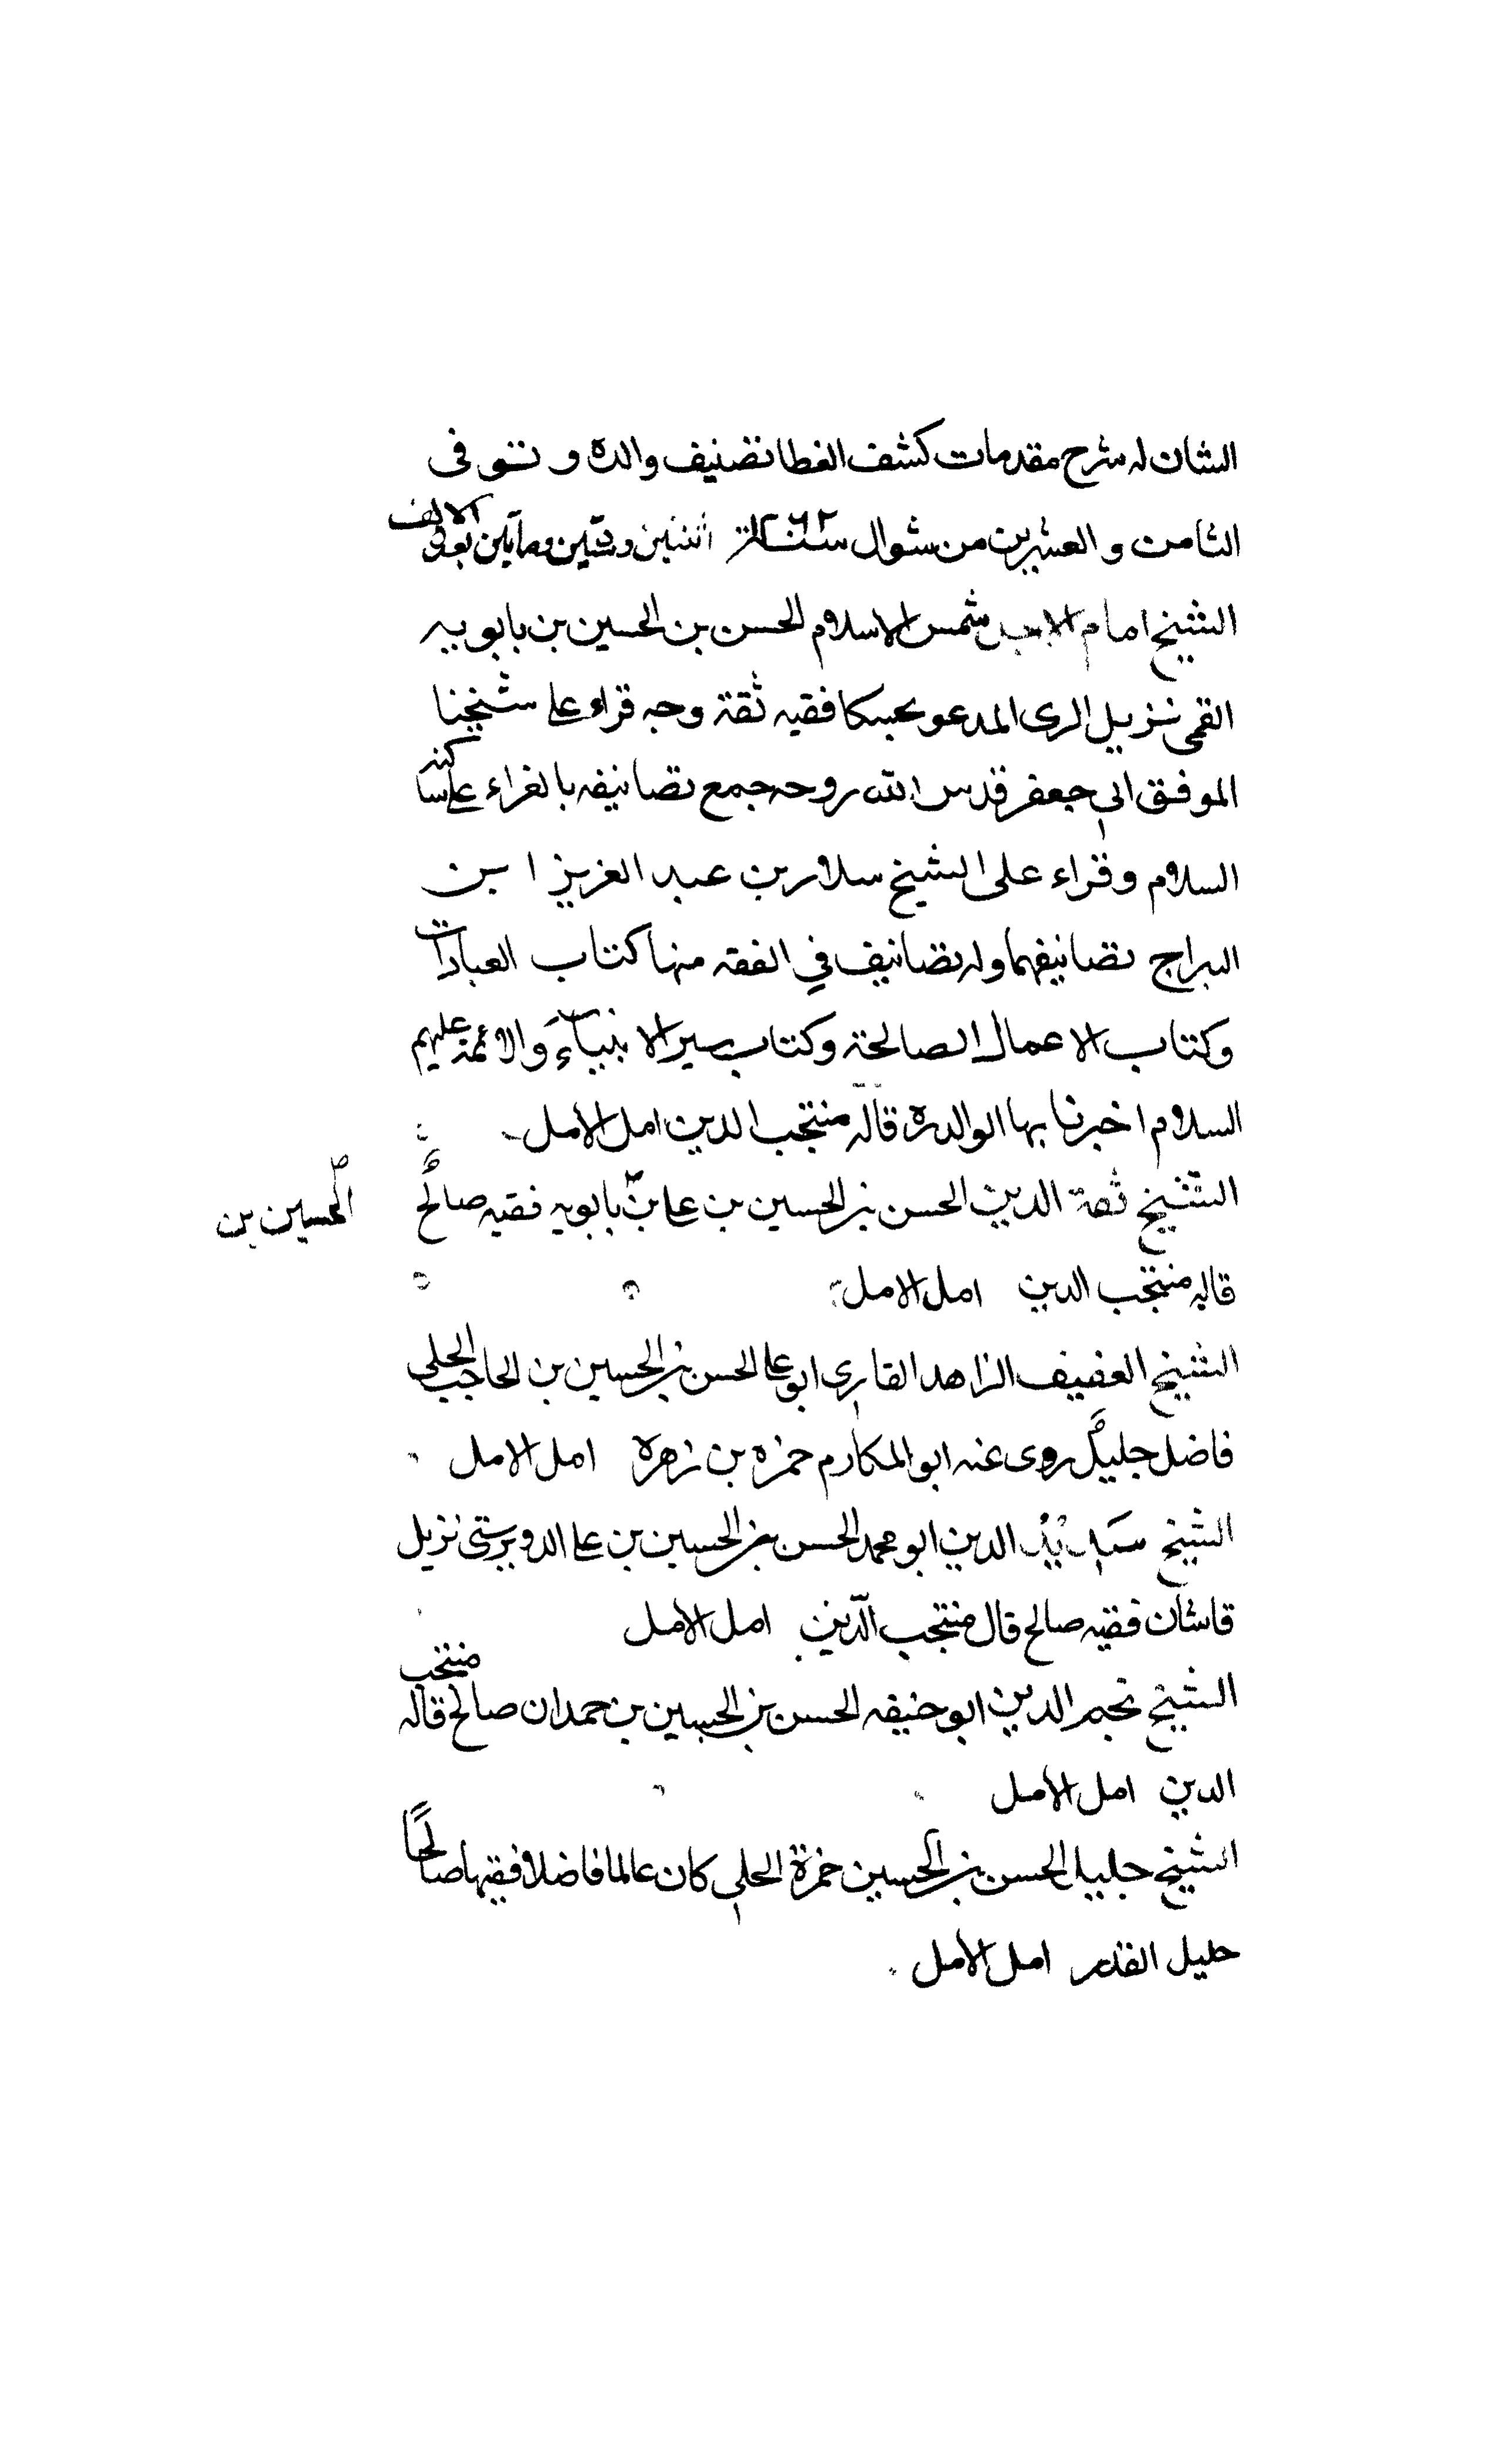 الشان له شرح مقدمات كشف الغطا تصنيف والده و توفى
الثامن و العشرين من شوال سنة ١٢٦٢ اثنين وستين ومأيتين بعد الالف
الشيخ امام الاجل شمس الاسلام الحسن بن الحسين بن بابويه
القمى نزيل الرى المدعو بحسكا فقيه ثقة وجه قراء على شيخنا
الموفق ابي جعفر قدس الله روحه جمع تصانيفه بالغراء على ساكنه
السلام وقراء على الشيخ سلار بن عبد العزيز ابن
البراج تصانيفهما وله تصانيف في الفقه منها كتاب العبادات
وكتاب الاعمال الصالحة وكتاب سير الانبياء والائمة عليهم
السلام اخبرنا بها الوالد ره قاله منتجب الدين امل الامل
الشيخ ثقة الدين الحسن بن الحسين بن على بن بابويه فقيه صالح
الحسين بن
قاله منتجب الدين امل الامل
الشيخ العفيف الزاهد القاري ابو على الحسن بن الحسين بن الحاجب الحلبي
فاضل جليل روى عنه ابو المكارم حمزه بن زهرة امل الامل
الشيخ سديد الدين ابو محمد الحسن بن الحسين بن على الدوريستى نزيل
قاشان فقيه صالح قال منتجب الدين امل الامل
الشيخ نجم الدين ابو حنيفه الحسن بن الحسين بن حمدان صالح قاله منتجب
الدين امل الامل
الشيخ جليل الحسن بن الحسين حمزة الحلبي كان عالما فاضلا فقيها صالحا
جليل القدر امل الامل